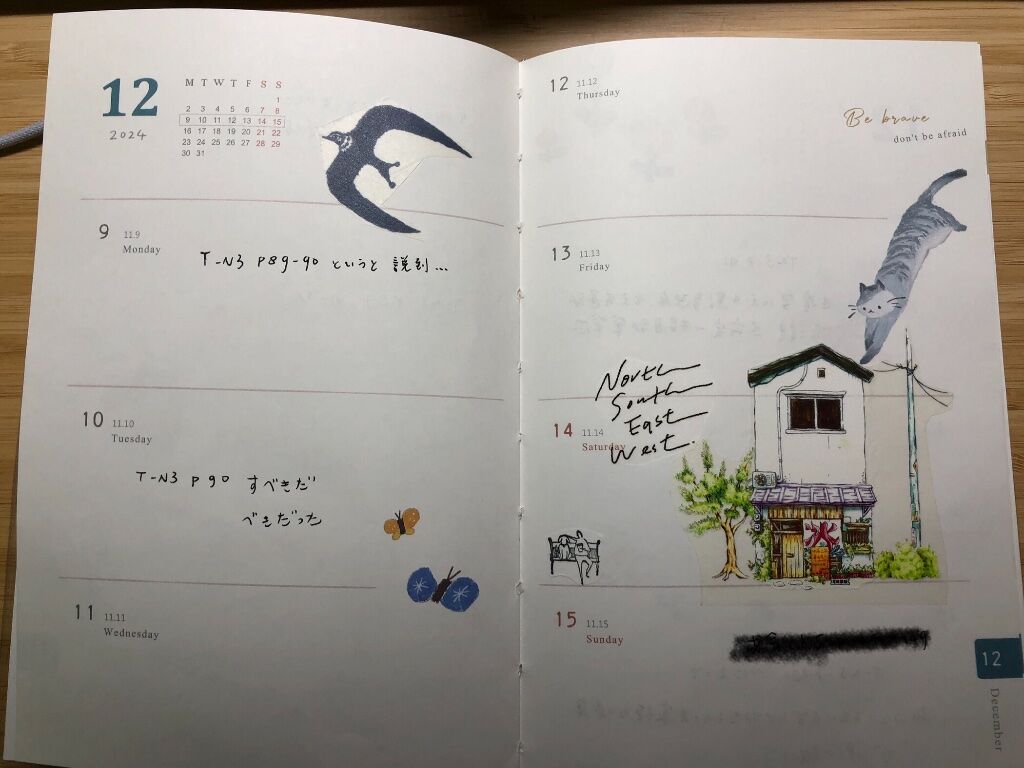 12
2024
M T W T F S S
1
2 3 4 5 6 7 8
9 10 11 12 13 14 15
16 17 18 19 20 21 22
23 24 25 26 27 28 29
30 31
9
11.9
Monday
T-N3 P89-90 というと 説到...
10
11.10
Tuesday
T-N3 P90 すべきだ
べきだった
11
11.11
Wednesday
12
11.12
Thursday
Be brave
don't be afraid
13
11.13
Friday
North
South
East
West.
14
11.14
Saturday
火
15
11.15
Sunday
12
December